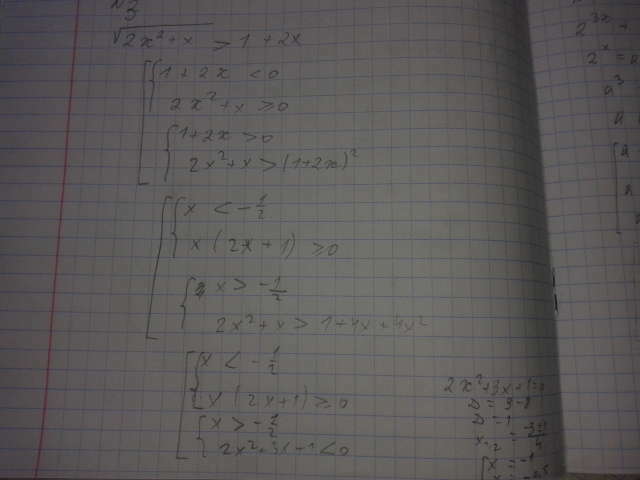 №3
√2x²+x > 1+2x
1+2x <0
2x²+x ≥0
1+2x >0
2x²+x >(1+2x)²
x < -1/2
x (2x+1) ≥0
x > -1/2
2x²+x > 1+4x+4x²
x < -1/2
x (2x+1) ≥0
x > -1/2
2x²+3x+1<0
2x²+3x+1=0
D= 9-8
D=1
2^3x
2^x =
a³